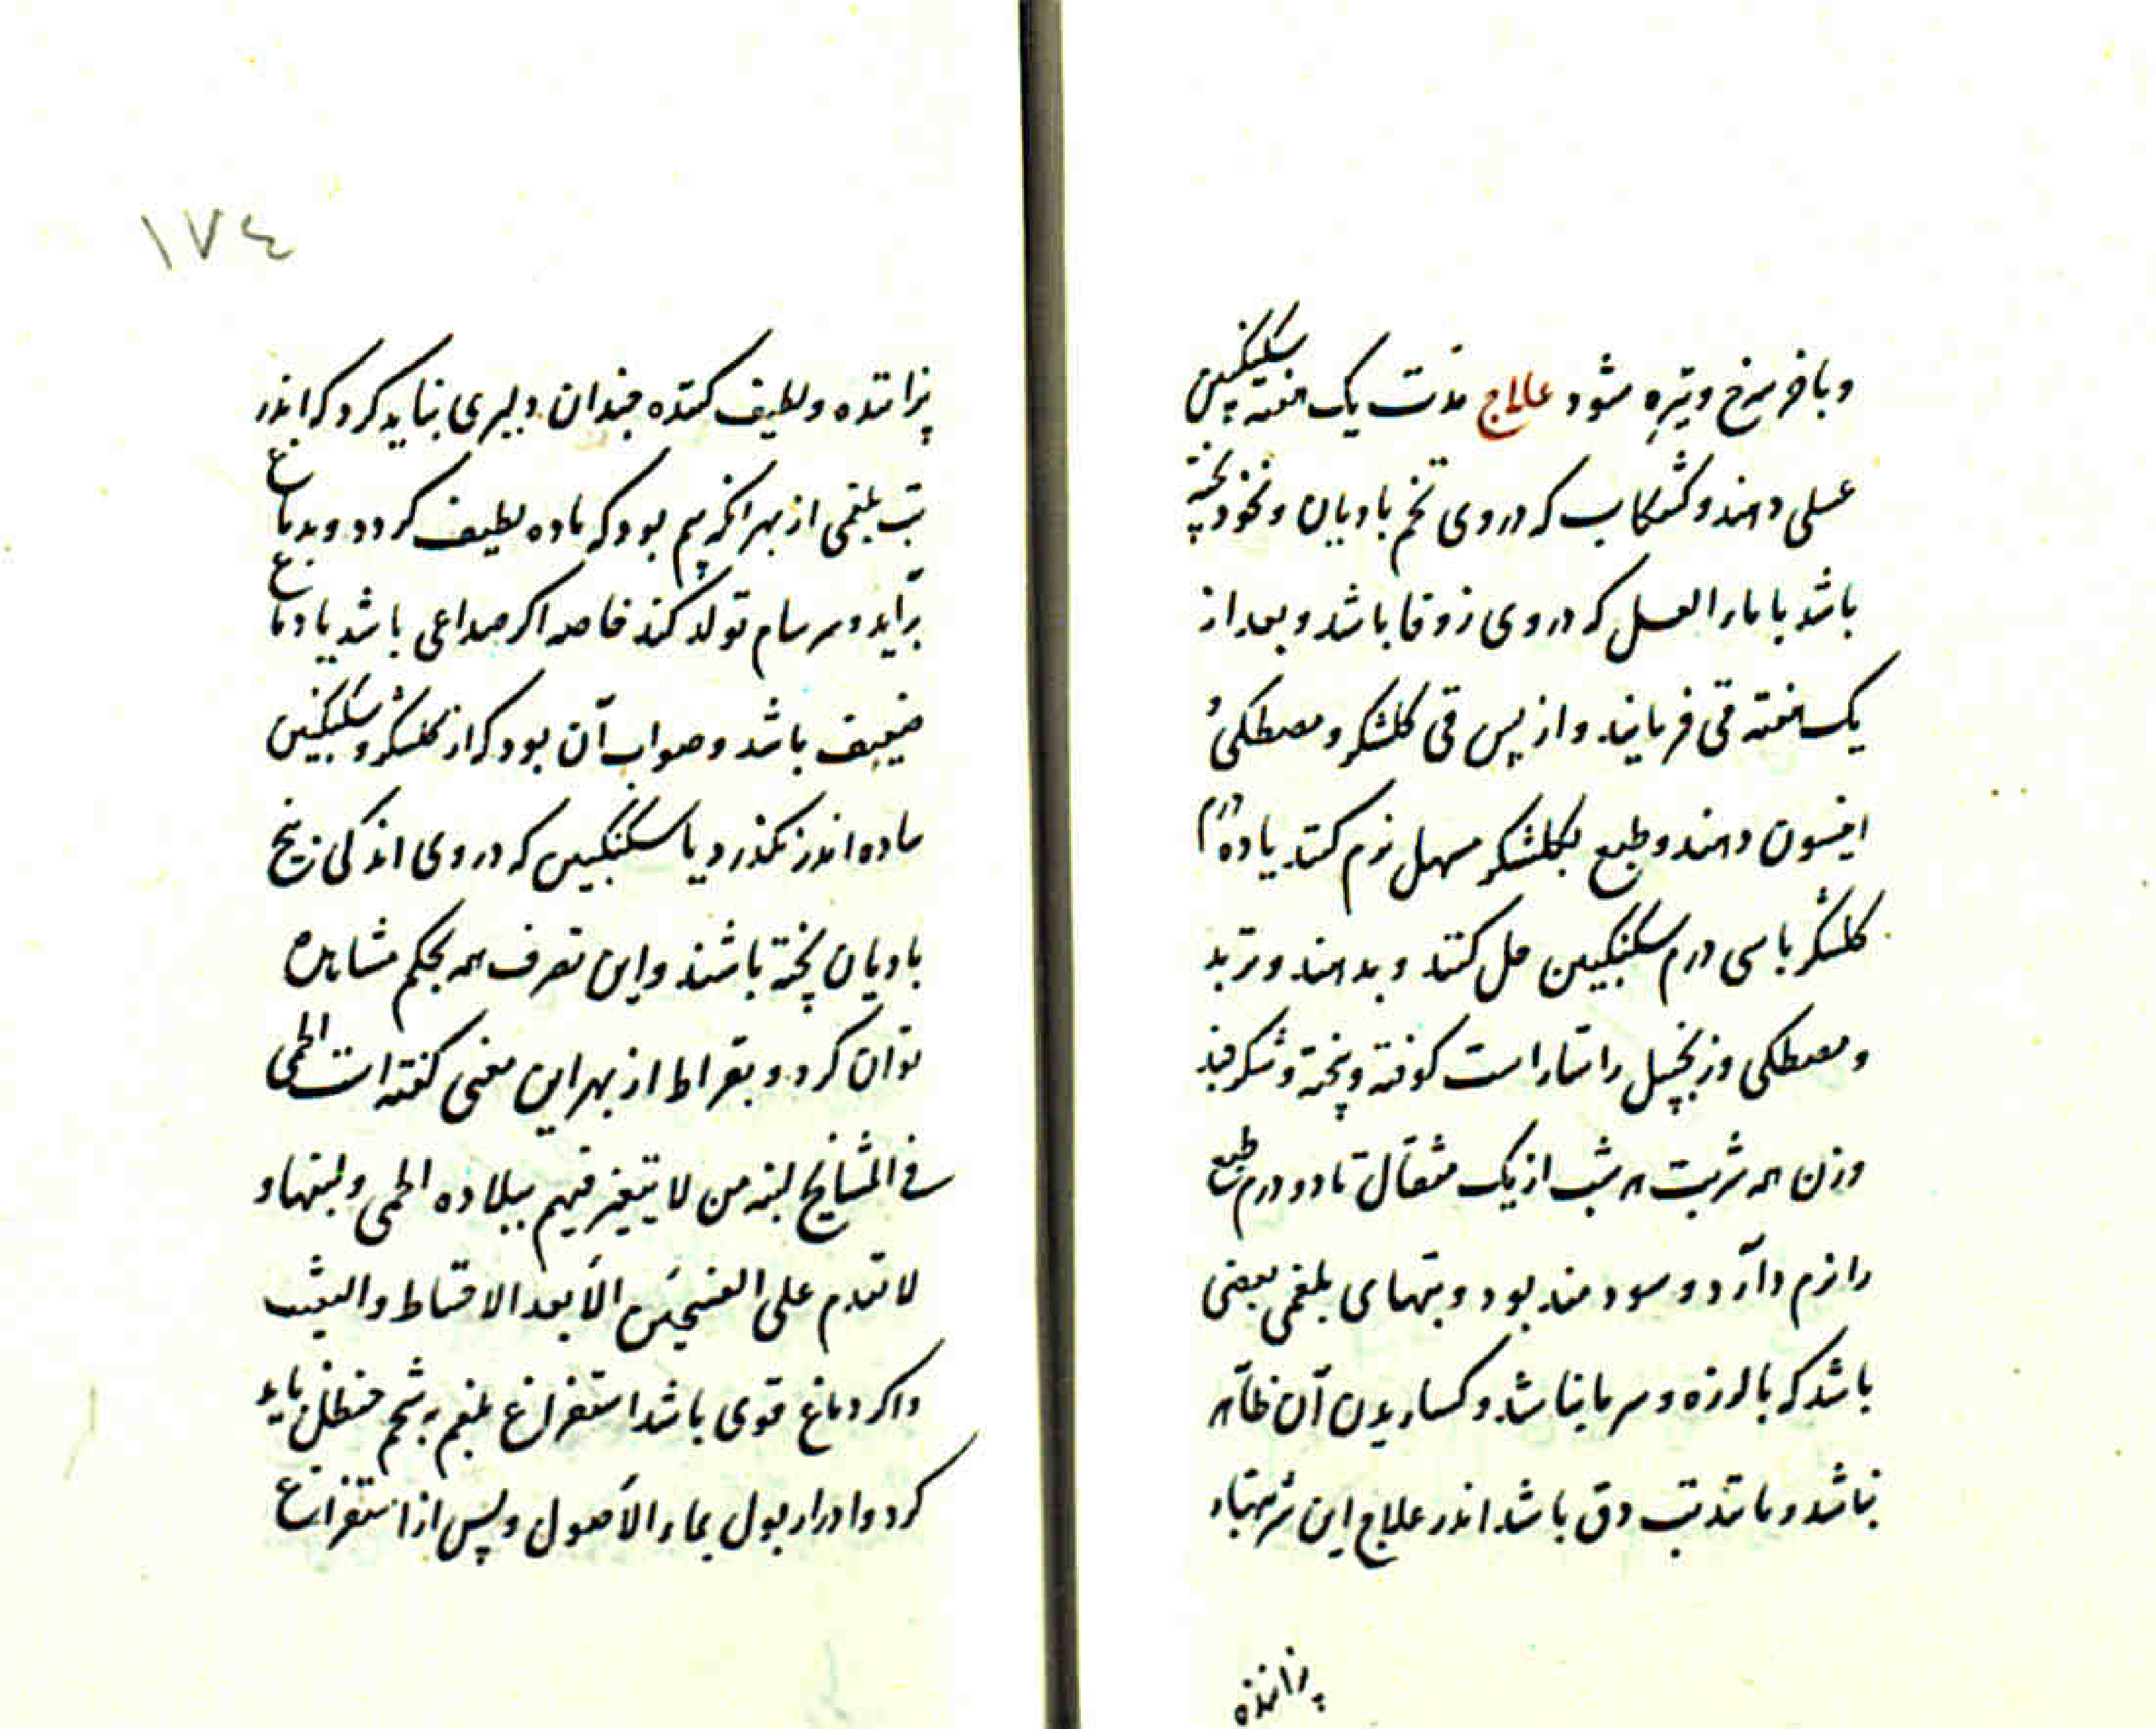 و باخر سرخ و تیره شود علاج مدت یک هفته سکنگبین
عسلی دهند و کشکاب که در وی تخم بادیان و نخود پخته
باشد با ماء العسل که در وی زوفا باشد و بعد از
یک هفته قی فرمایند و از پس قی کلشکر و مصطکی و
انیسون دهند و طبع بکلشکر مسهل نرم کنند یا ده درم
کلشکر با سی درم سکنگبین حل کنند و بدهند و تربد
و مصطکی و زنجپیل راستاراست کوفته و پخته و شکر قند
وزن همه شربت هر شب از یک مثقال تا دو درم طبع
را نرم دارد و سودمند بود و تبهای بلغمی بعضی
باشد که با لرزه و سرما نباشد و کساریدن آن ظاهر
نباشد و مانند تب دق باشد اندر علاج این شربتهاء
پزاننده
١٧٤
پزاننده و لطیف کننده چندان دلیری نباید کرد که اندر
تب بلغمی از بهر انکه بیم بود که ماده لطیف کردد و بدماغ
برآید و سرسام تولد کند خاصه اکر صداعی باشد یا دماغ
ضعیف باشد و صواب آن بود که از کلشکر و سکنگبین
ساده اندر نکذرد یا سکنگبین که در وی اندکی زبیخ
بادیان پخته باشند و این تصرف همه بحکم مشاهده
توان کرد و بقراط از بهر این معنی کفته است الحمی
فی المشایخ لینه من لا یتغیر فیهم ببلاده الحمی و لینها و
لا تقدم علی الفنجیکس الا بعد الاحتیاط و التثبت
و اکر دماغ قوی باشد استفراغ بلغم به شحم حنظل باید
کرد و ادرار بول بماء الاصول و پس از استفراغ